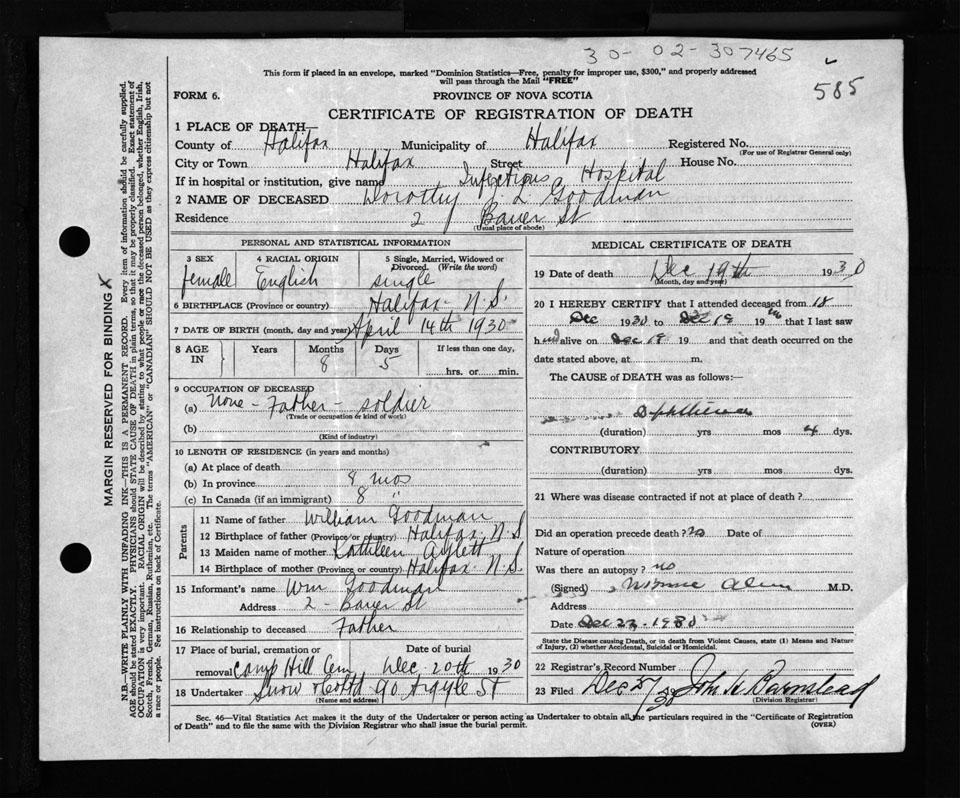 30-02-307465
585
This form if placed in an envelope, marked "Dominion Statistics—Free, penalty for improper use, $300," and properly addressed
will pass through the Mail "FREE"
FORM 6.
PROVINCE OF NOVA SCOTIA
CERTIFICATE OF REGISTRATION OF DEATH
1 PLACE OF DEATH—
County of Halifax Municipality of Halifax Registered No.
(For use of Registrar General only)
City or Town Halifax Street House No.
If in hospital or institution, give name Infectious Hospital
2 NAME OF DECEASED Dorothy L Goodman
Residence 2 Bauer St
(Usual place of abode)
PERSONAL AND STATISTICAL INFORMATION
3 SEX
female
4 RACIAL ORIGIN
English
5 Single, Married, Widowed or
Divorced. (Write the word)
single
6 BIRTHPLACE (Province or country) Halifax N.S.
7 DATE OF BIRTH (month, day and year) April 14th 1930
8 AGE IN
Years
Months
8
Days
5
If less than one day,
hrs. or min.
9 OCCUPATION OF DECEASED
(a) None - Father - soldier
(Trade or occupation or kind of work)
(b)
(Kind of industry)
10 LENGTH OF RESIDENCE (in years and months)
(a) At place of death
(b) In province 8 mos
(c) In Canada (if an immigrant) 8 "
Parents
11 Name of father William Goodman
12 Birthplace of father (Province or country) Halifax N.S
13 Maiden name of mother Kathleen
14 Birthplace of mother (Province or country) Halifax N.S.
15 Informant's name Wm Goodman
Address 2 - Bauer St
16 Relationship to deceased Father
17 Place of burial, cremation or Date of burial
removal Camp Hill Cem Dec. 20th 1930
18 Undertaker Snow & Co Ltd 90 Argyle St
(Name and address)
MEDICAL CERTIFICATE OF DEATH
19 Date of death Dec 19th 1930
(Month, day and year)
20 I HEREBY CERTIFY that I attended deceased from 18
Dec 1930 to Dec 19 19 that I last saw
h alive on Dec 19 19 and that death occurred on the
date stated above, at m.
The CAUSE of DEATH was as follows:—
Diphtheria
(duration) yrs mos 4 dys.
CONTRIBUTORY
(duration) yrs mos dys.
21 Where was disease contracted if not at place of death?
Did an operation precede death? no Date of
Nature of operation
Was there an autopsy? no
(Signed) M.D.
Address
Date Dec 23 - 1930
State the Disease causing Death, or in death from Violent Causes, state (1) Means and Nature
of Injury, (2) whether Accidental, Suicidal or Homicidal.
22 Registrar's Record Number
23 Filed Dec 27/30 John H Barnstead
(Division Registrar)
Sec. 46—Vital Statistics Act makes it the duty of the Undertaker or person acting as Undertaker to obtain all the particulars required in the "Certificate of Registration
of Death" and to file the same with the Division Registrar who shall issue the burial permit.
(OVER)
MARGIN RESERVED FOR BINDING X
N.B.—WRITE PLAINLY WITH UNFADING INK—THIS IS A PERMANENT RECORD. Every item of information should be carefully supplied.
AGE should be stated EXACTLY. PHYSICIANS should STATE CAUSE OF DEATH in plain terms, so that it may be properly classified. Exact statement of
OCCUPATION is very important. RACIAL ORIGIN will be described by stating to what people or race the deceased person belonged, whether English, Irish,
Scotch, French, German, Russian, Ruthenian, etc. The terms "AMERICAN" or "CANADIAN" SHOULD NOT BE USED as they express citizenship but not
a race or people. See instructions on back of Certificate.